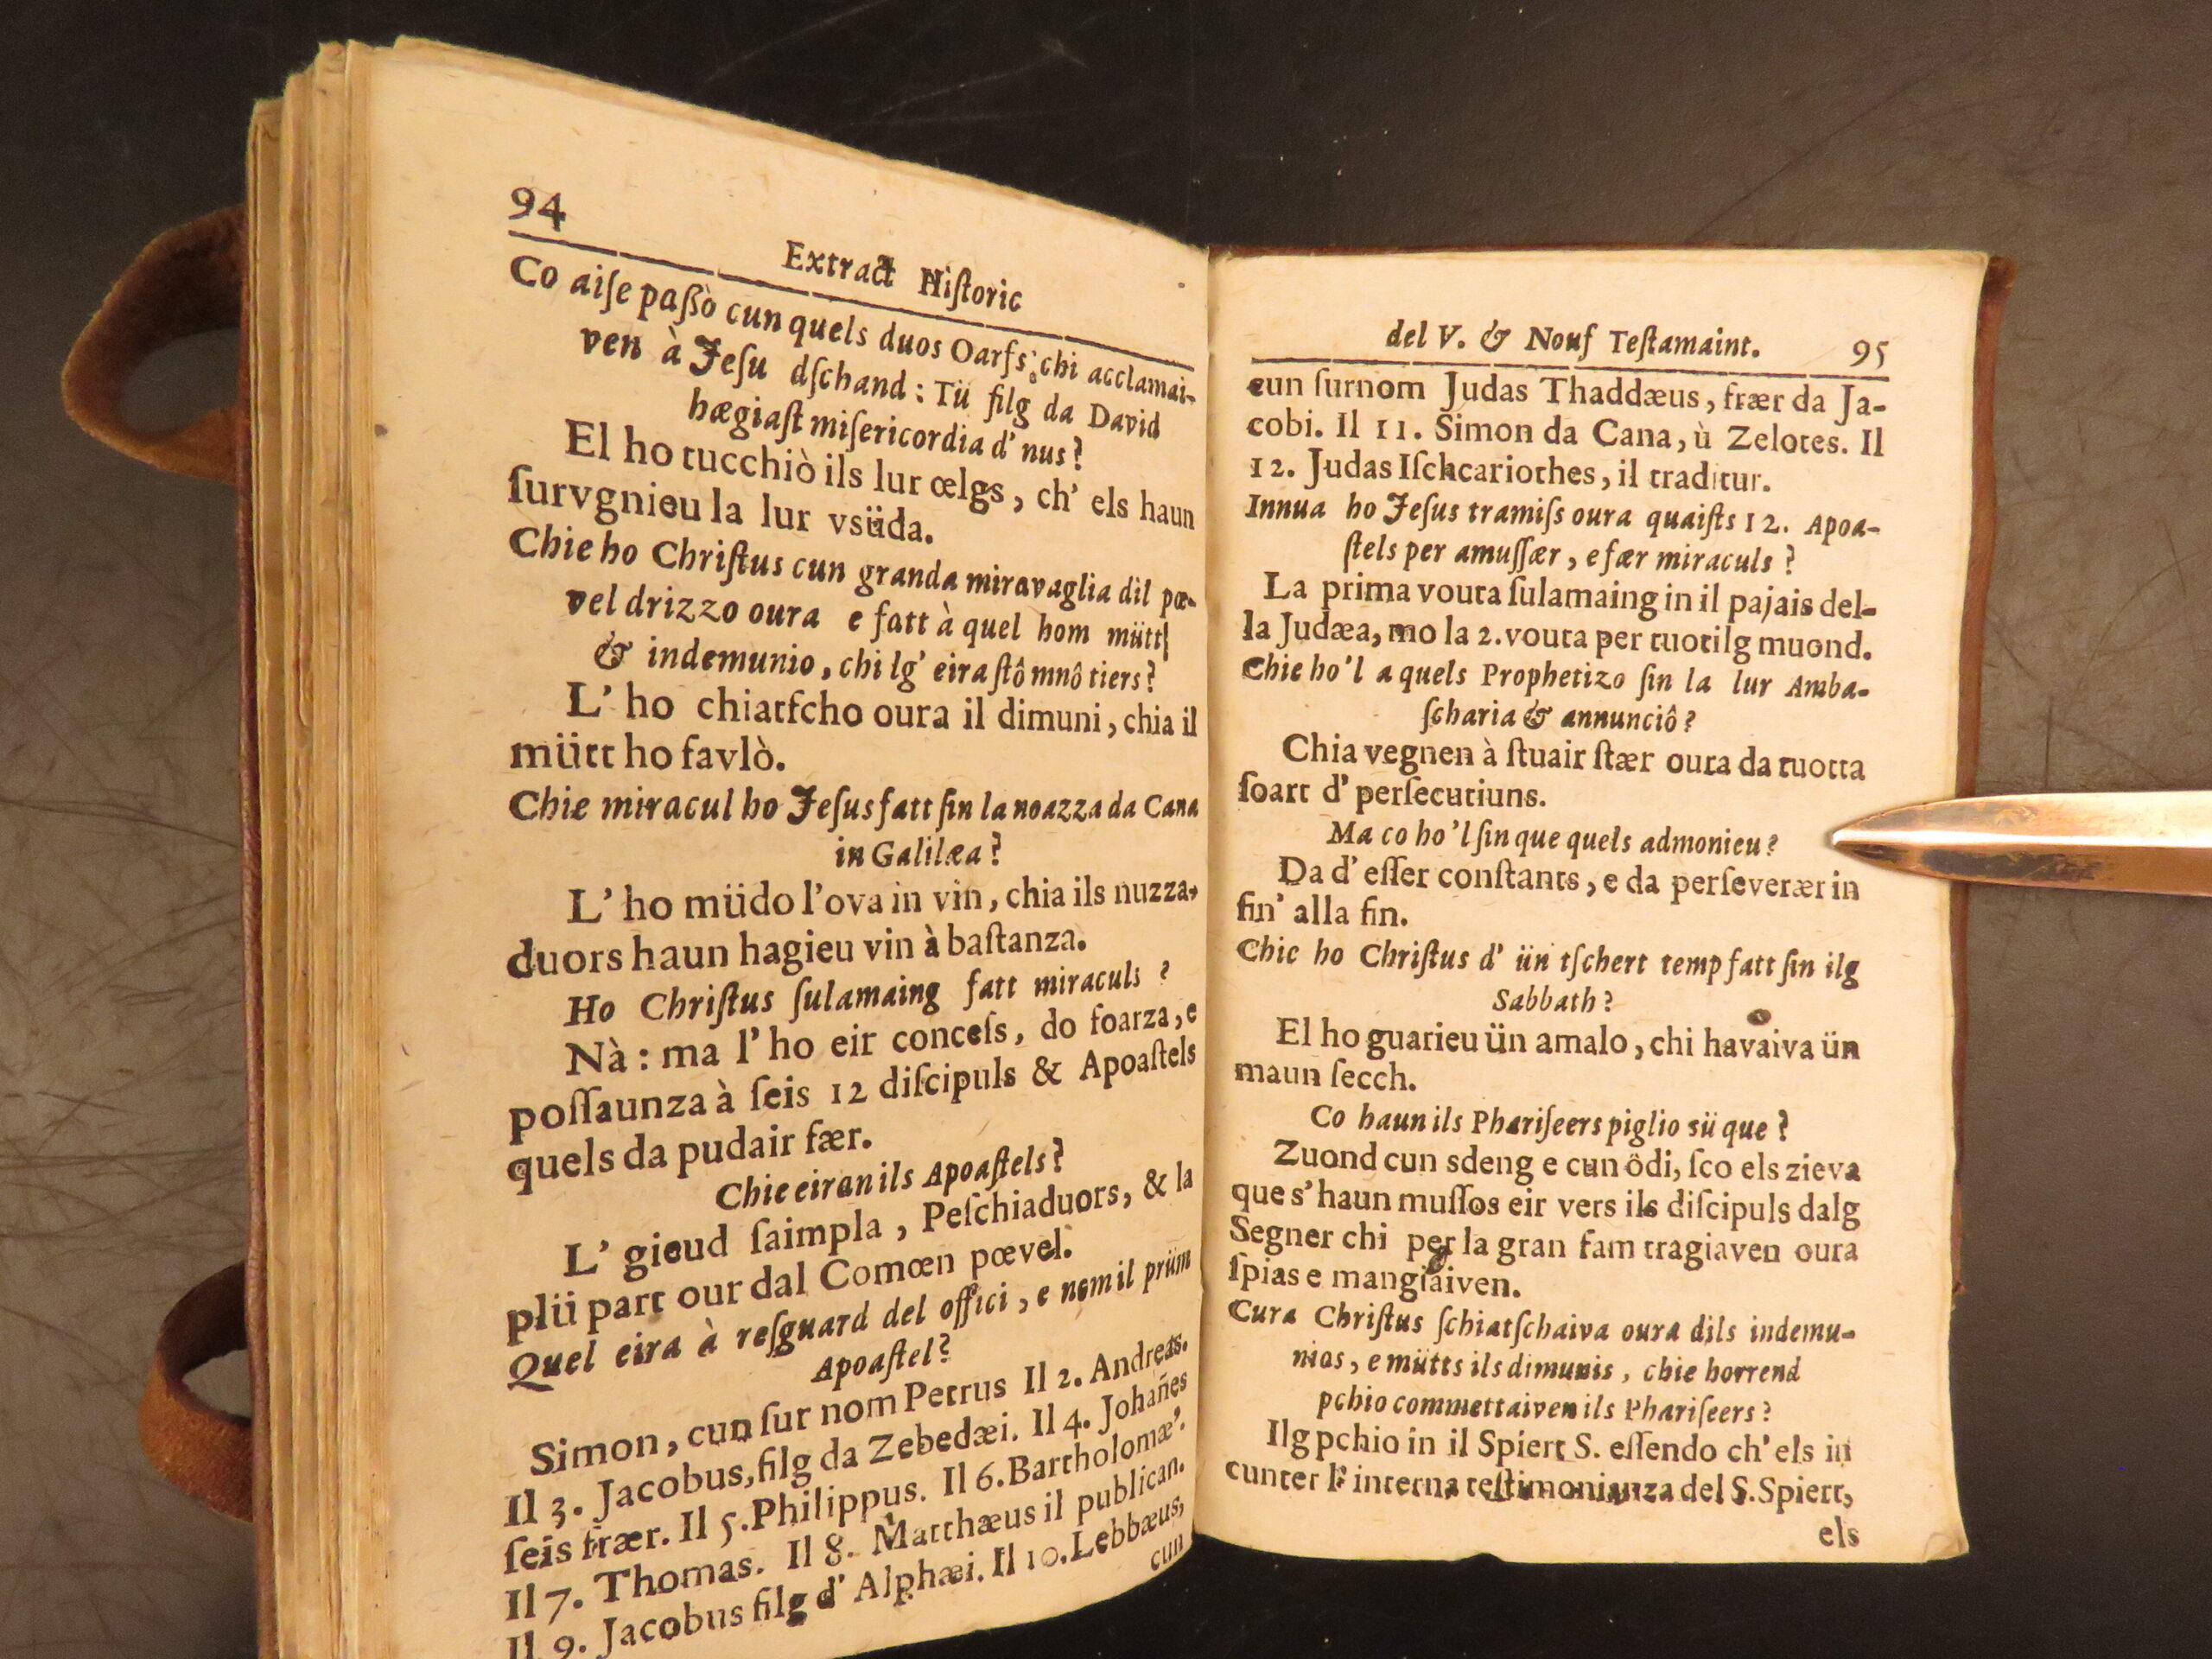 94
Extract Hiſtoric
Co aiſe paßò cun quels duos Oarfs, chi acclamai-
ven à Jeſu dſchand: Tü filg da David
hægiaſt miſericordia d' nus?
El ho tucchiò ils lur œlgs, ch' els haun
ſurvgnieu la lur vsüda.
Chie ho Chriſtus cun granda miravaglia dil pœ-
vel drizzo oura e fatt à quel hom mütt
& indemunio, chi lg' eira ſtô mnô tiers?
L' ho chiatſcho oura il dimuni, chia il
mütt ho favlò.
Chie miracul ho Jeſus fatt ſin la noazza da Cana
in Galilæa?
L' ho müdo l'ova in vin, chia ils nuzza-
duors haun hagieu vin à baſtanza.
Ho Chriſtus ſulamaing fatt miraculs?
Nà: ma l' ho eir conceſs, do foarza, e
poſſaunza à ſeis 12 diſcipuls & Apoaſtels
quels da pudair fær.
Chie eiran ils Apoaſtels?
L' gieud ſaimpla, Peſchiaduors, & la
plü part our dal Comœn pœvel.
Quel eira à reſguard del offici, e nom il prüm
Apoaſtel?
Simon, cun ſur nom Petrus Il 2. Andreas.
Il 3. Jacobus, filg da Zebedæi. Il 4. Johañes
ſeis frær. Il 5. Philippus. Il 6. Bartholomæ'.
Il 7. Thomas. Il 8. Matthæus il publican.
Il 9. Jacobus filg d' Alphæi. Il 10. Lebbæus,
cun
del V. & Nouf Teſtamaint. 95
cun ſurnom Judas Thaddæus, frær da Ja-
cobi. Il 11. Simon da Cana, ù Zelotes. Il
12. Judas Iſchcariothes, il traditur.
Innua ho Jeſus tramiſs oura quaiſts 12. Apoa-
ſtels per amuſſær, e fær miraculs?
La prima vouta ſulamaing in il pajais del-
la Judæa, mo la 2. vouta per tuotilg muond.
Chie ho'l a quels Prophetizo ſin la lur Amba-
ſcharia & annunciô?
Chia vegnen à ſtuair ſtær oura da tuotta
ſoart d' perſecutiuns.
Ma co ho'l ſin que quels admonieu?
Da d' eſſer conſtants, e da perſeverær in
fin' alla fin.
Chie ho Chriſtus d' ün tſchert temp fatt ſin ilg
Sabbath?
El ho guarieu ün amalo, chi havaiva ün
maun ſecch.
Co haun ils Phariſeers piglio sü que?
Zuond cun sdeng e cun ôdi, ſco els zieva
que s' haun muſſos eir vers ils diſcipuls dalg
Segner chi per la gran fam tragiaven oura
ſpias e mangiaiven.
Cura Chriſtus ſchiatſchaiva oura dils indemu-
nios, e mütts ils dimunis, chie horrend
pchio commettaiven ils Phariſeers?
Ilg pchio in il Spiert S. eſſendo ch' els in
cunter l' interna teſtimonianza del S. Spiert,
els